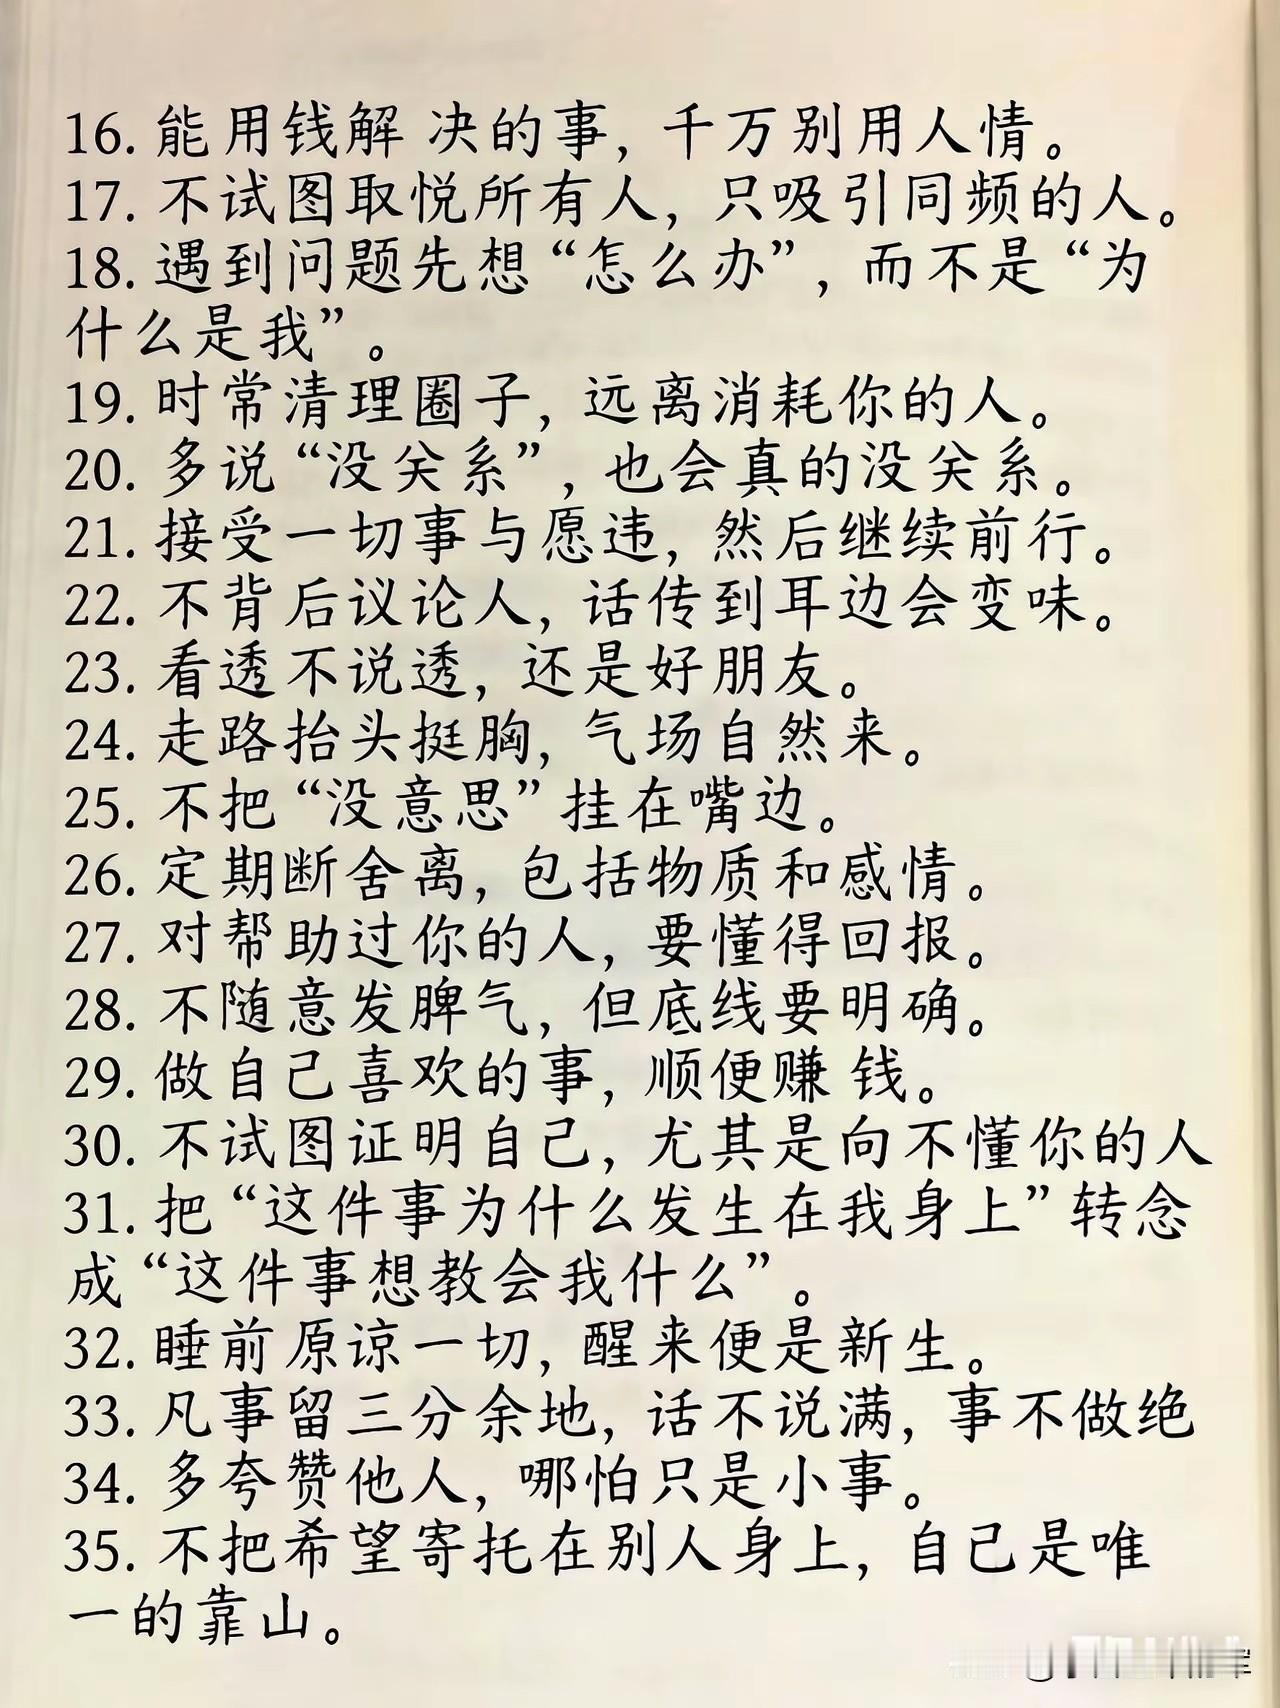 16. 能用钱解 决的事, 千万别用人情。
17. 不试图取悦所有人, 只吸引同频的人。
18. 遇到问题先想“怎么办”, 而不是“为
什么是我”。
19. 时常清理圈子, 远离消耗你的人。
20. 多说“没关系”, 也会真的没关系。
21. 接受一切事与愿违, 然后继续前行。
22. 不背后议论人, 话传到耳边会变味。
23. 看透不说透, 还是好朋友。
24. 走路抬头挺胸, 气场自然来。
25. 不把“没意思”挂在嘴边。
26. 定期断舍离, 包括物质和感情。
27. 对帮助过你的人, 要懂得回报。
28. 不随意发脾气, 但底线要明确。
29. 做自己喜欢的事, 顺便赚 钱。
30. 不试图证明自己, 尤其是向不懂你的人
31. 把“这件事为什么发生在我身上”转念
成“这件事想教会我什么”。
32. 睡前原谅一切, 醒来便是新生。
33. 凡事留三分余地, 话不说满, 事不做绝
34. 多夸赞他人, 哪怕只是小事。
35. 不把希望寄托在别人身上, 自己是唯
一的靠山。